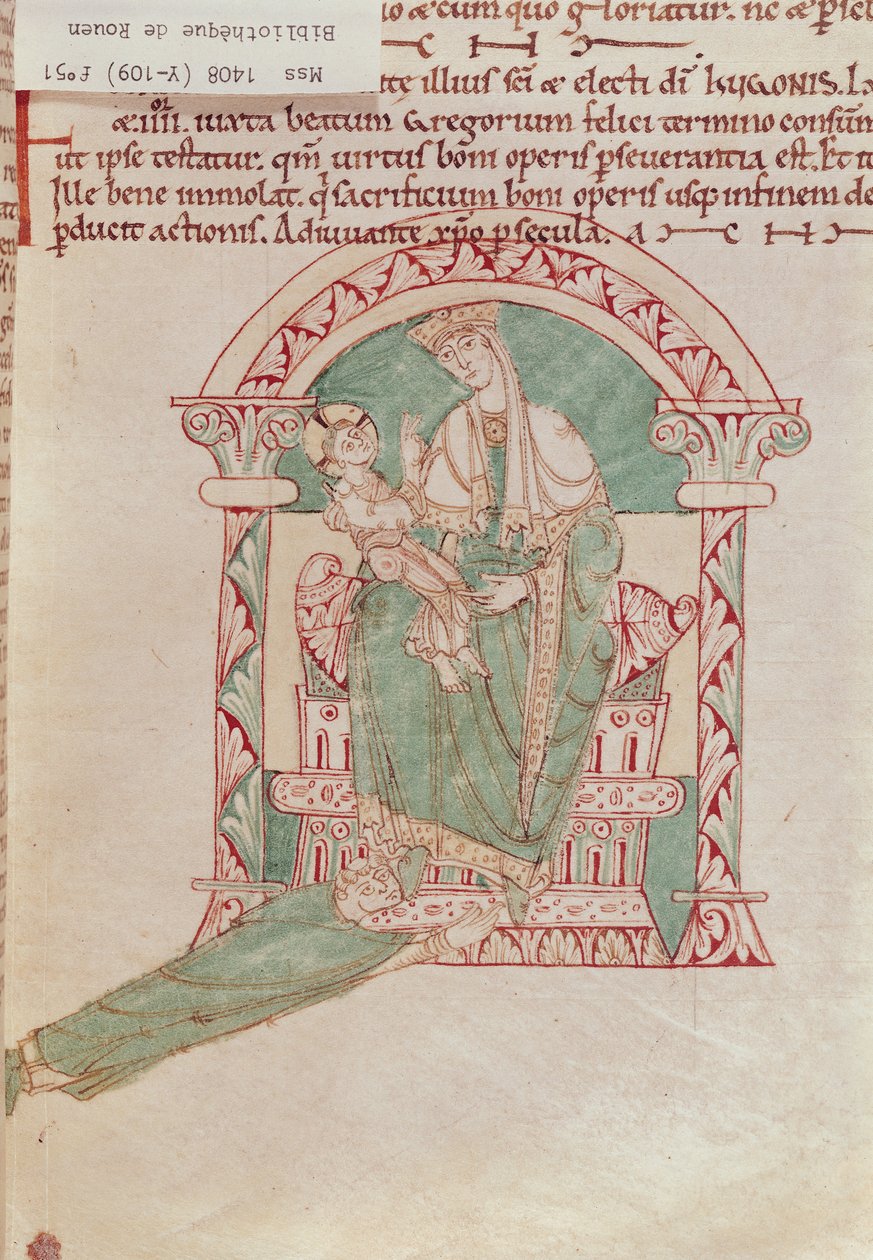 Bibliothèque de Rouen
Mss 1408 (Y-109) f°51
cum quo gloriatur.
illius sc̄i & electi dī hUGONIS.
or
&.iiii. iuxta beatum Gregorium felici termino consūm
ut ipse testatur. qm̄ uirtus boni operis ꝑseuerantia est. Et
Ille bene immolat. q̇ sacrificium boni operis usq; infinem de
ꝑducit actionis. Adiuuante xp̄o ꝑ secula.